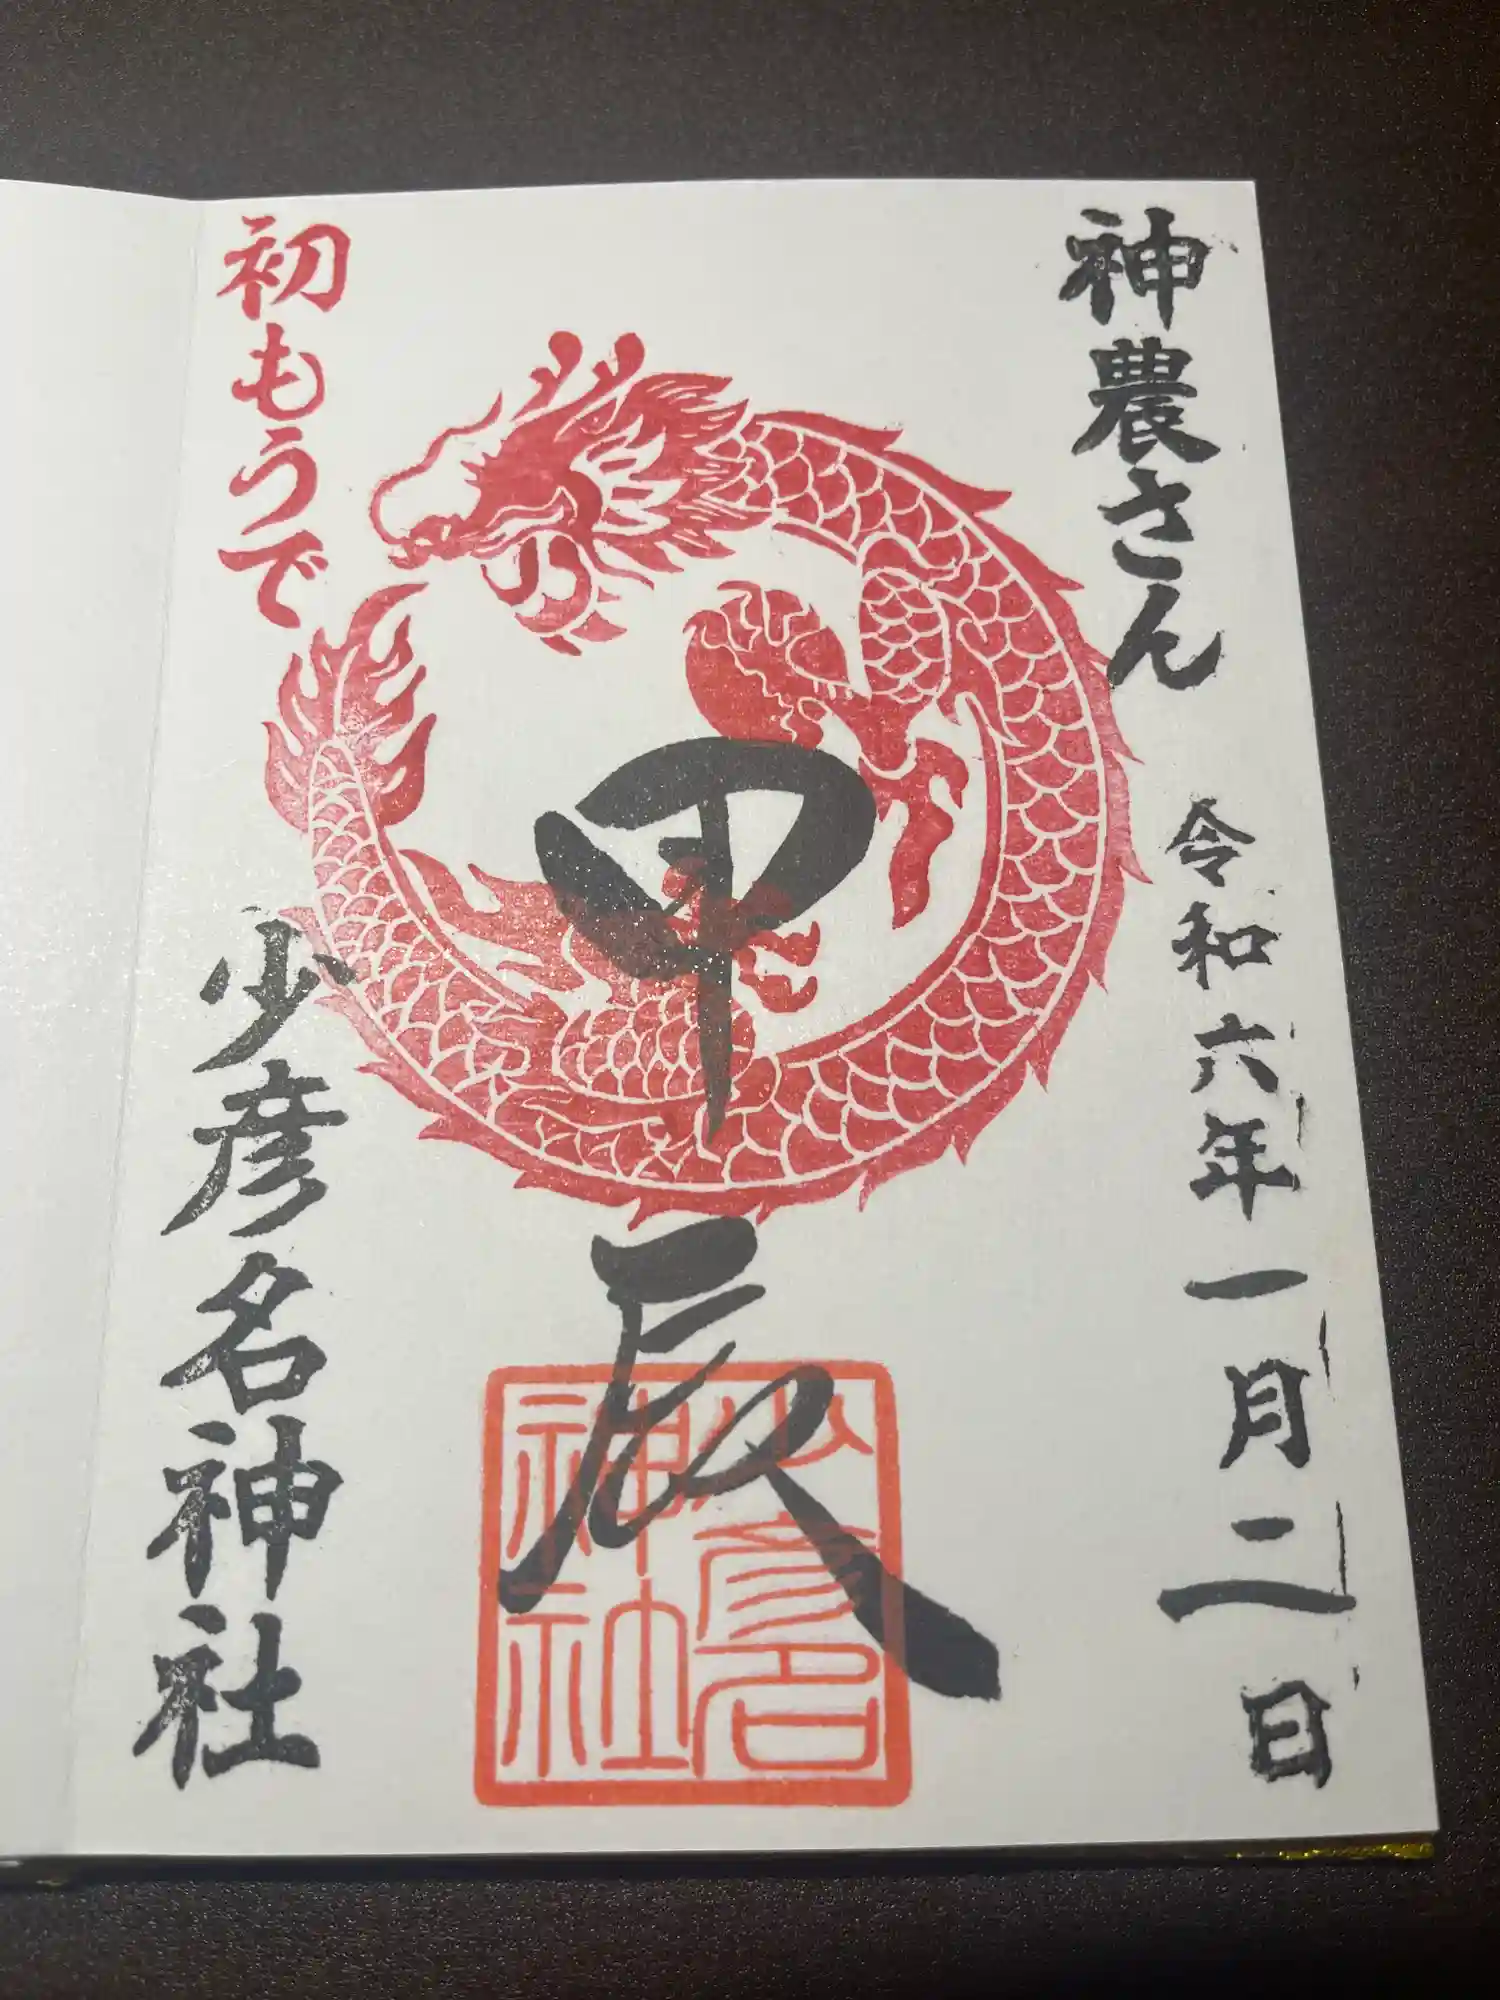 神農さん
令和六年一月二日
甲辰
少彦名神社
初もうで
少彦名神社